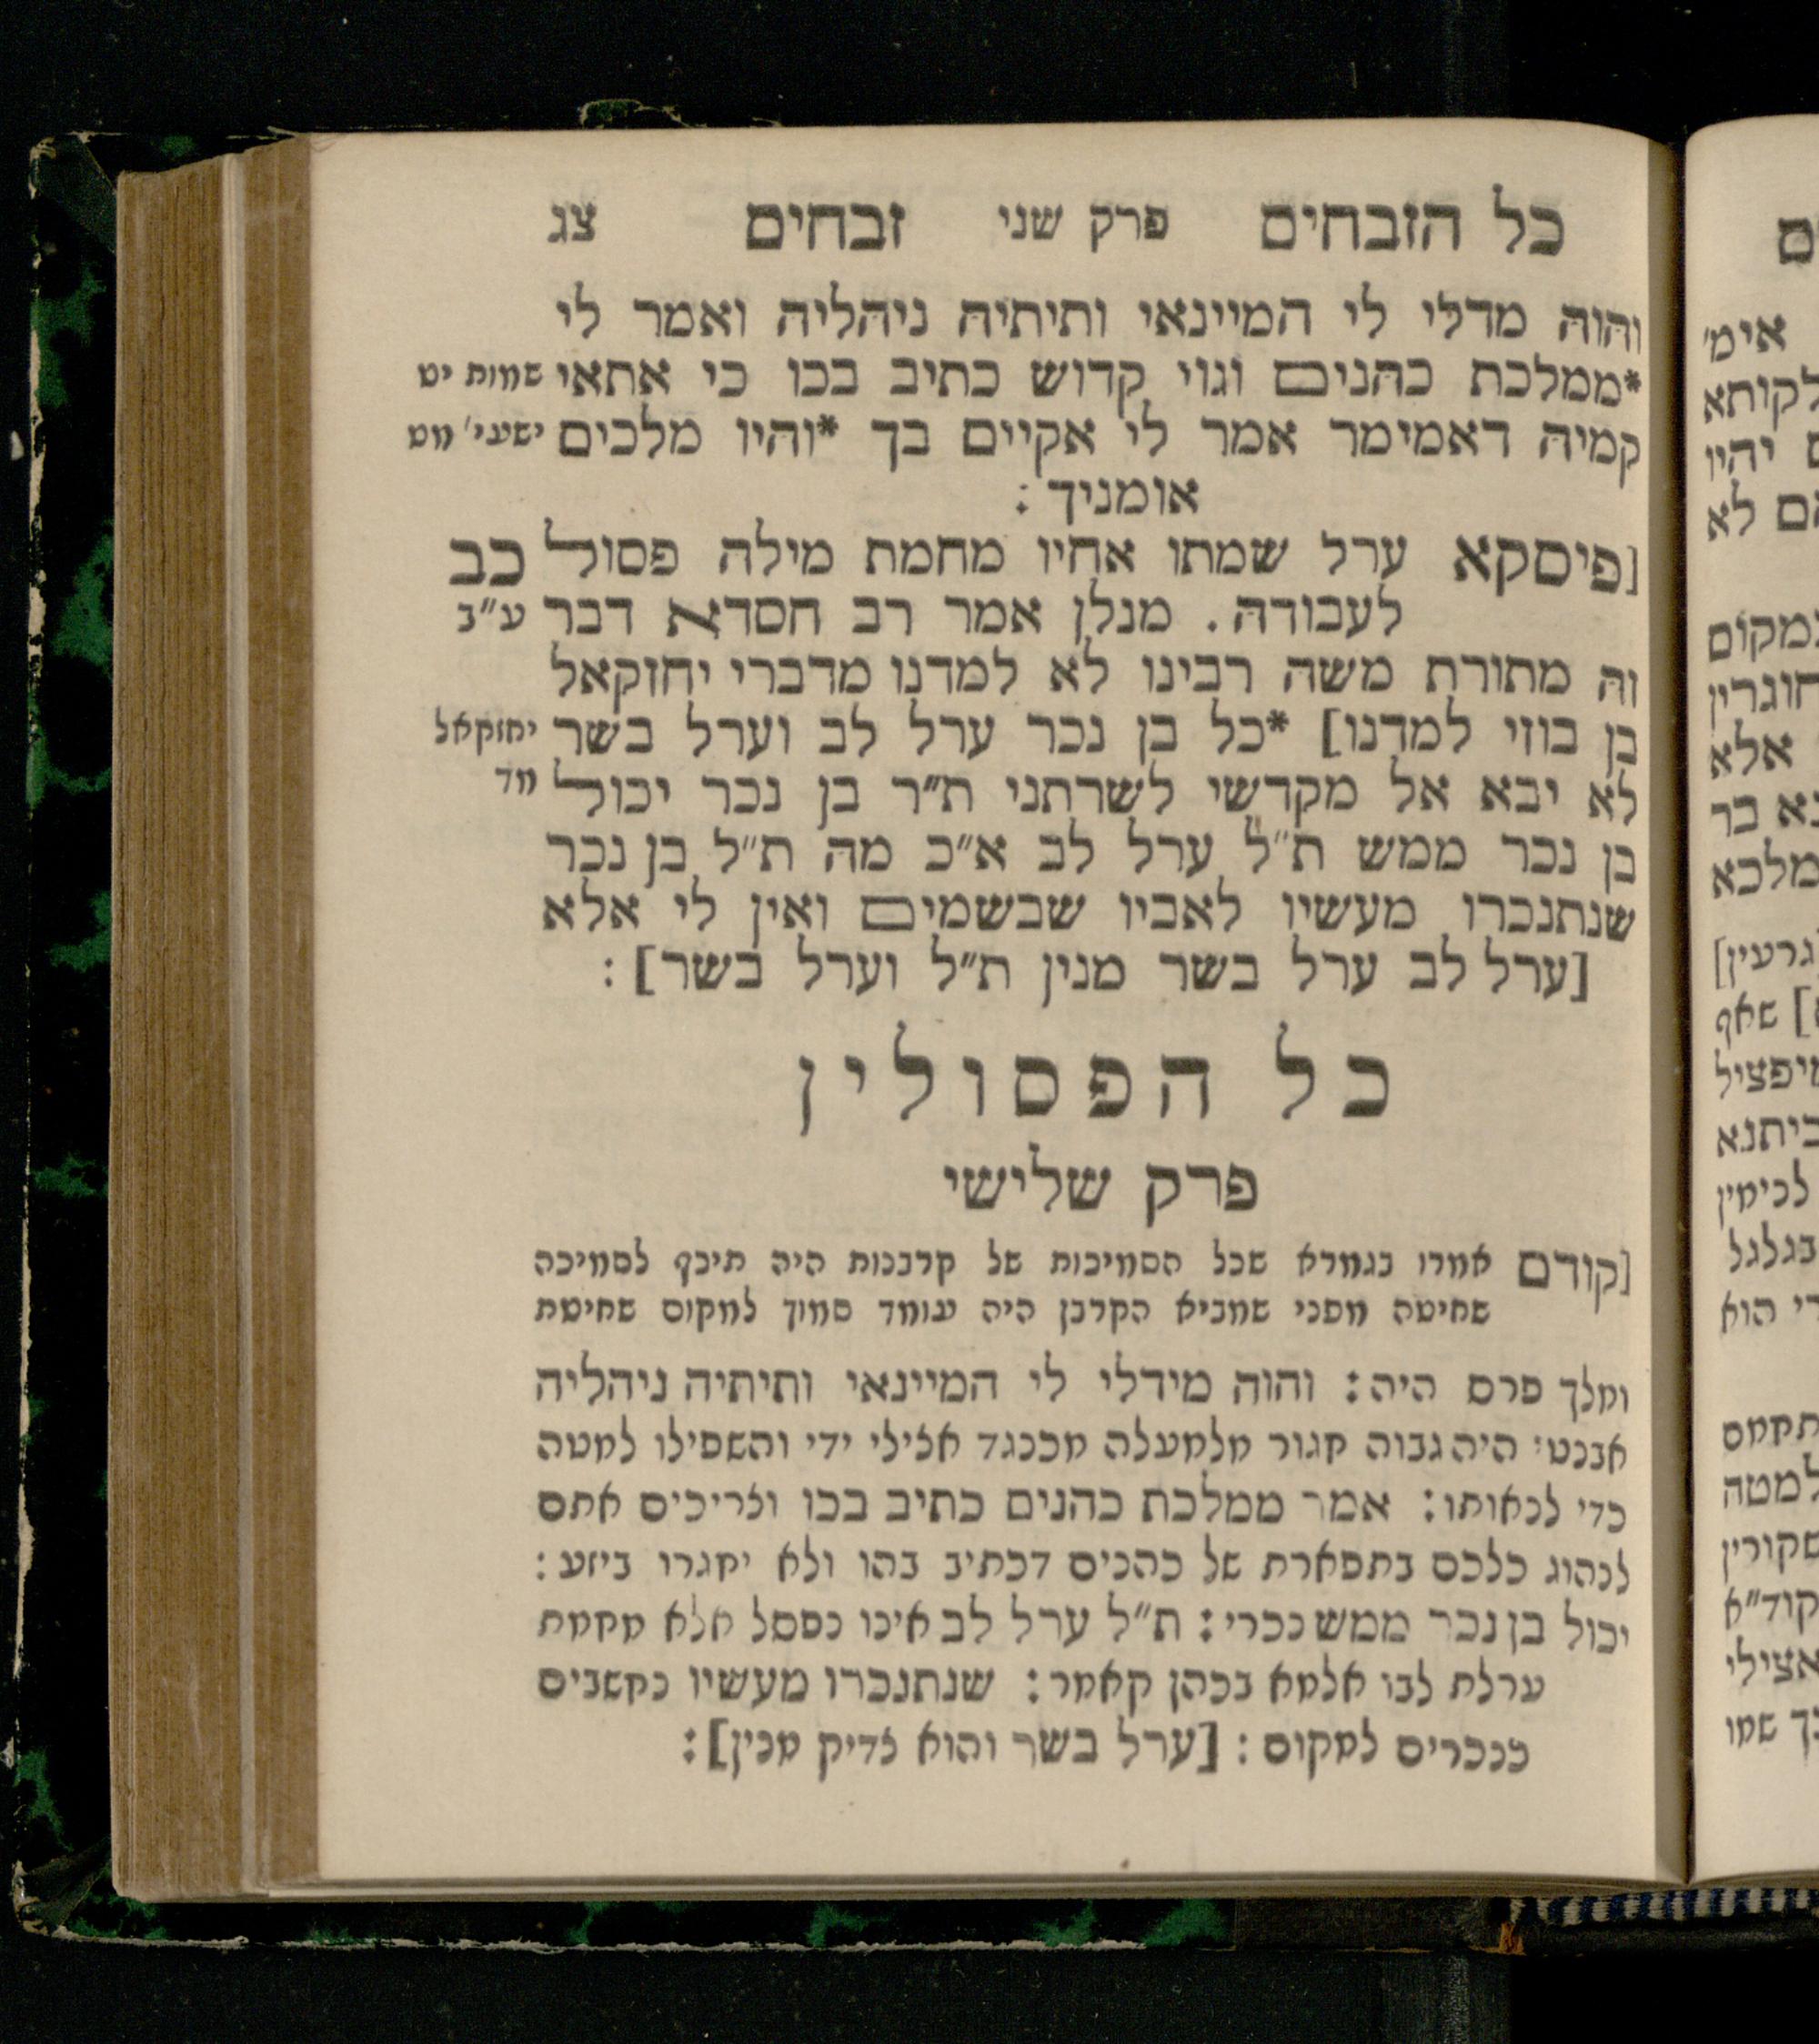 כל הזבחים פרק שני זבחים צג
והוה מדלי לי המיינאי ותיתיה ניהליה ואמר לי
*ממלכת כהנים וגוי קדוש כתיב בכו כי אתאי שמות יט
קמיה דאמימר אמר לי אקיים בך *והיו מלכים ישעי' מט
אומניך :
[פיסקא ערל שמתו אחיו מחמת מילה פסול כב
לעבודה. מנלן אמר רב חסדא דבר ע״ב
זה מתורת משה רבינו לא למדנו מדברי יחזקאל
בן בוזי למדנו] *כל בן נכר ערל לב וערל בשר יחזקאל
לא יבא אל מקדשי לשרתני ת״ר בן נכר יכול מד
בן נכר ממש ת״ל ערל לב א״כ מה ת״ל בן נכר
שנתנכרו מעשיו לאביו שבשמים ואין לי אלא
[ערל לב ערל בשר מנין ת״ל וערל בשר] :
כל הפסולין
פרק שלישי
[קודם אמרו בגמרא שכל הסמיכות של קרבנות היה תיכף לסמיכה
שחיטה מפני שמביא הקרבן היה עומד סמוך למקום שחיטת
ומלך פרס היה : והוה מידלי לי המיינאי ותיתיה ניהליה
אבנטי היה גבוה חגור מלמעלה מכנגד אצילי ידי והשפילו למטה
כדי לנאותו : אמר ממלכת כהנים כתיב בכו וצריכים אתם
לנהוג כלכם בתפארת של כהנים דכתיב בהו ולא יחגרו ביזע :
יכול בן נכר ממש נכרי : ת״ל ערל לב אינו נפסל אלא מחמת
ערלת לבו אלמא בכהן קאמר : שנתנכרו מעשיו נחשבים
כנכרים למקום : [ערל בשר והוא צדיק מנין] :
ם
אימ'
לקותא
יהיו
ם לא
מקום
חוגרין
אלא
א בר
מלכא
גרעין]
] שאף
יפציל
ביתנא
לכימין
בגלגל
רי הוא
תחמס
למטה
שקורין
קוד״א
אצילי
ך שמו